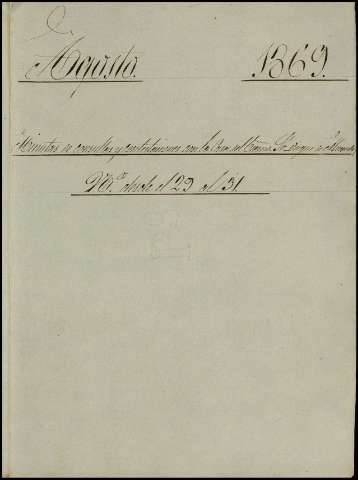 Agosto. 1869.
Minutas de consultas y contestaciones con la Casa del Excmo. Sr. Duque de
Nos. desde el 29 al 31